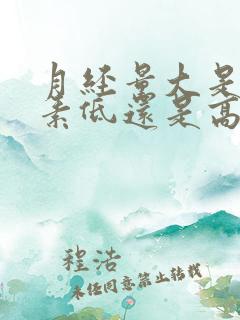 月經量大是
素低還是高
程浩
未經同意禁止轉載